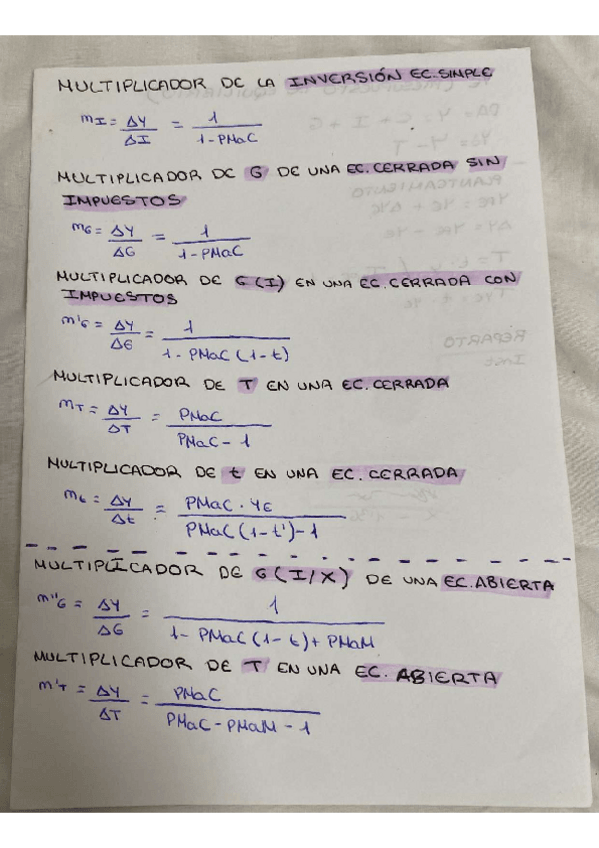 MULTIPLICADOR DE LA INVERSIÓN EC. SIMPLE
mI = ΔY/ΔI = 1/(1-PMaC)
MULTIPLICADOR DE G DE UNA EC. CERRADA SIN
IMPUESTOS
mG = ΔY/ΔG = 1/(1-PMaC)
MULTIPLICADOR DE G(I) EN UNA EC. CERRADA CON
IMPUESTOS
m'G = ΔY/ΔG = 1/(1-PMaC(1-t))
MULTIPLICADOR DE T EN UNA EC. CERRADA
mT = ΔY/ΔT = PMaC/(PMaC-1)
MULTIPLICADOR DE t EN UNA EC. CERRADA
mt = ΔY/Δt = PMaC · YE/(PMaC(1-t')-1)
MULTIPLICADOR DE G(I/X) DE UNA EC. ABIERTA
m''G = ΔY/ΔG = 1/(1-PMaC(1-t)+PMaM)
MULTIPLICADOR DE T EN UNA EC. ABIERTA
m'T = ΔY/ΔT = PMaC/(PMaC-PMaM-1)